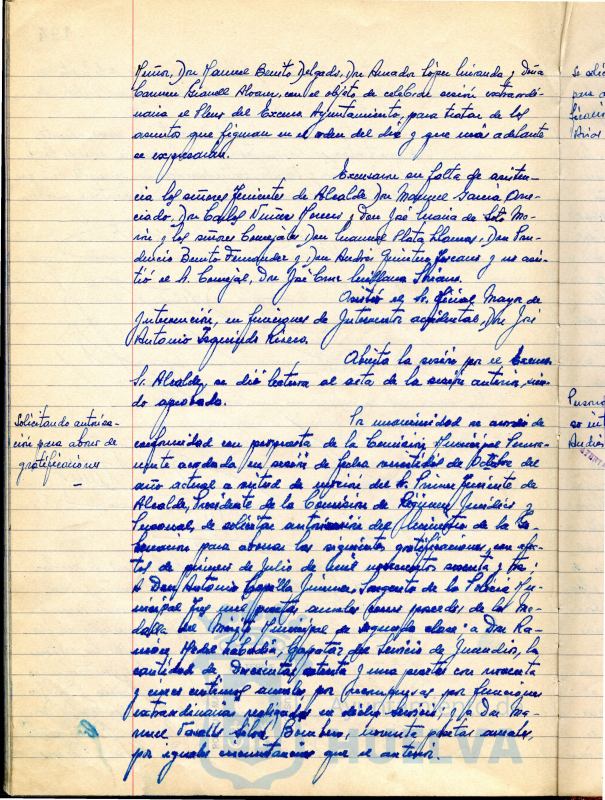 Muñoz, Don Manuel Benito Delgado, Don Amador López Miranda y Doña
Carmen Gianell Alvarez, con el objeto de celebrar sesión extraordi-
naria el Pleno del Excmo Ayuntamiento, para tratar de los
asuntos que figuran en el orden del día y que más adelante
se expresarán.
Excusaron su falta de asisten-
cia los señores Tenientes de Alcalde Don Manuel García
Don Carlos Núñez Moreno y Don José María de Soto Mo-
rón y los señores Concejales Don Manuel Plata Llamas, Don Pru-
dencio Benito Fernández y Don Andrés Quintero y no asis-
tió el Sr. Concejal, Don José Cruz
Asistió el Sr. Oficial Mayor de
Intervención, en funciones de Interventor accidental, Don José
Antonio Izquierdo Rivero.
Abierta la sesión por el Excmo
Sr. Alcalde, se dió lectura al acta de la sesión anterior, sien-
do aprobada.
Solicitando autoriza-
ción para abono de
gratificaciones
Por unanimidad se acordó de
conformidad con propuesta de la Comisión Municipal Perma-
nente acordada en sesión de fecha veintidós de Octubre del
año actual a virtud de moción del Sr. Primer Teniente de
Alcalde, Presidente de la Comisión de Régimen Jurídico y
Personal, de solicitar autorización del Ministerio de la Go-
bernación para abonar las siguientes gratificaciones, con efec-
tos de primero de Julio de mil novecientos sesenta y tres:
A Don Antonio Capilla Jiménez, Sargento de la Policía Mu-
nicipal mil pesetas anuales como poseedor de la Me-
dalla al Mérito Municipal de segunda clase: a Don Ra-
món Capataz del Servicio de Incendios, la
cantidad de doscientas setenta y una pesetas con noventa
y cinco céntimos anuales por por funciones
extraordinarias realizadas en dicho servicio; y a Don Ma-
nuel Silva, Bombero, noventa pesetas anuales,
por iguales circunstancias que el anterior.
HUELVA